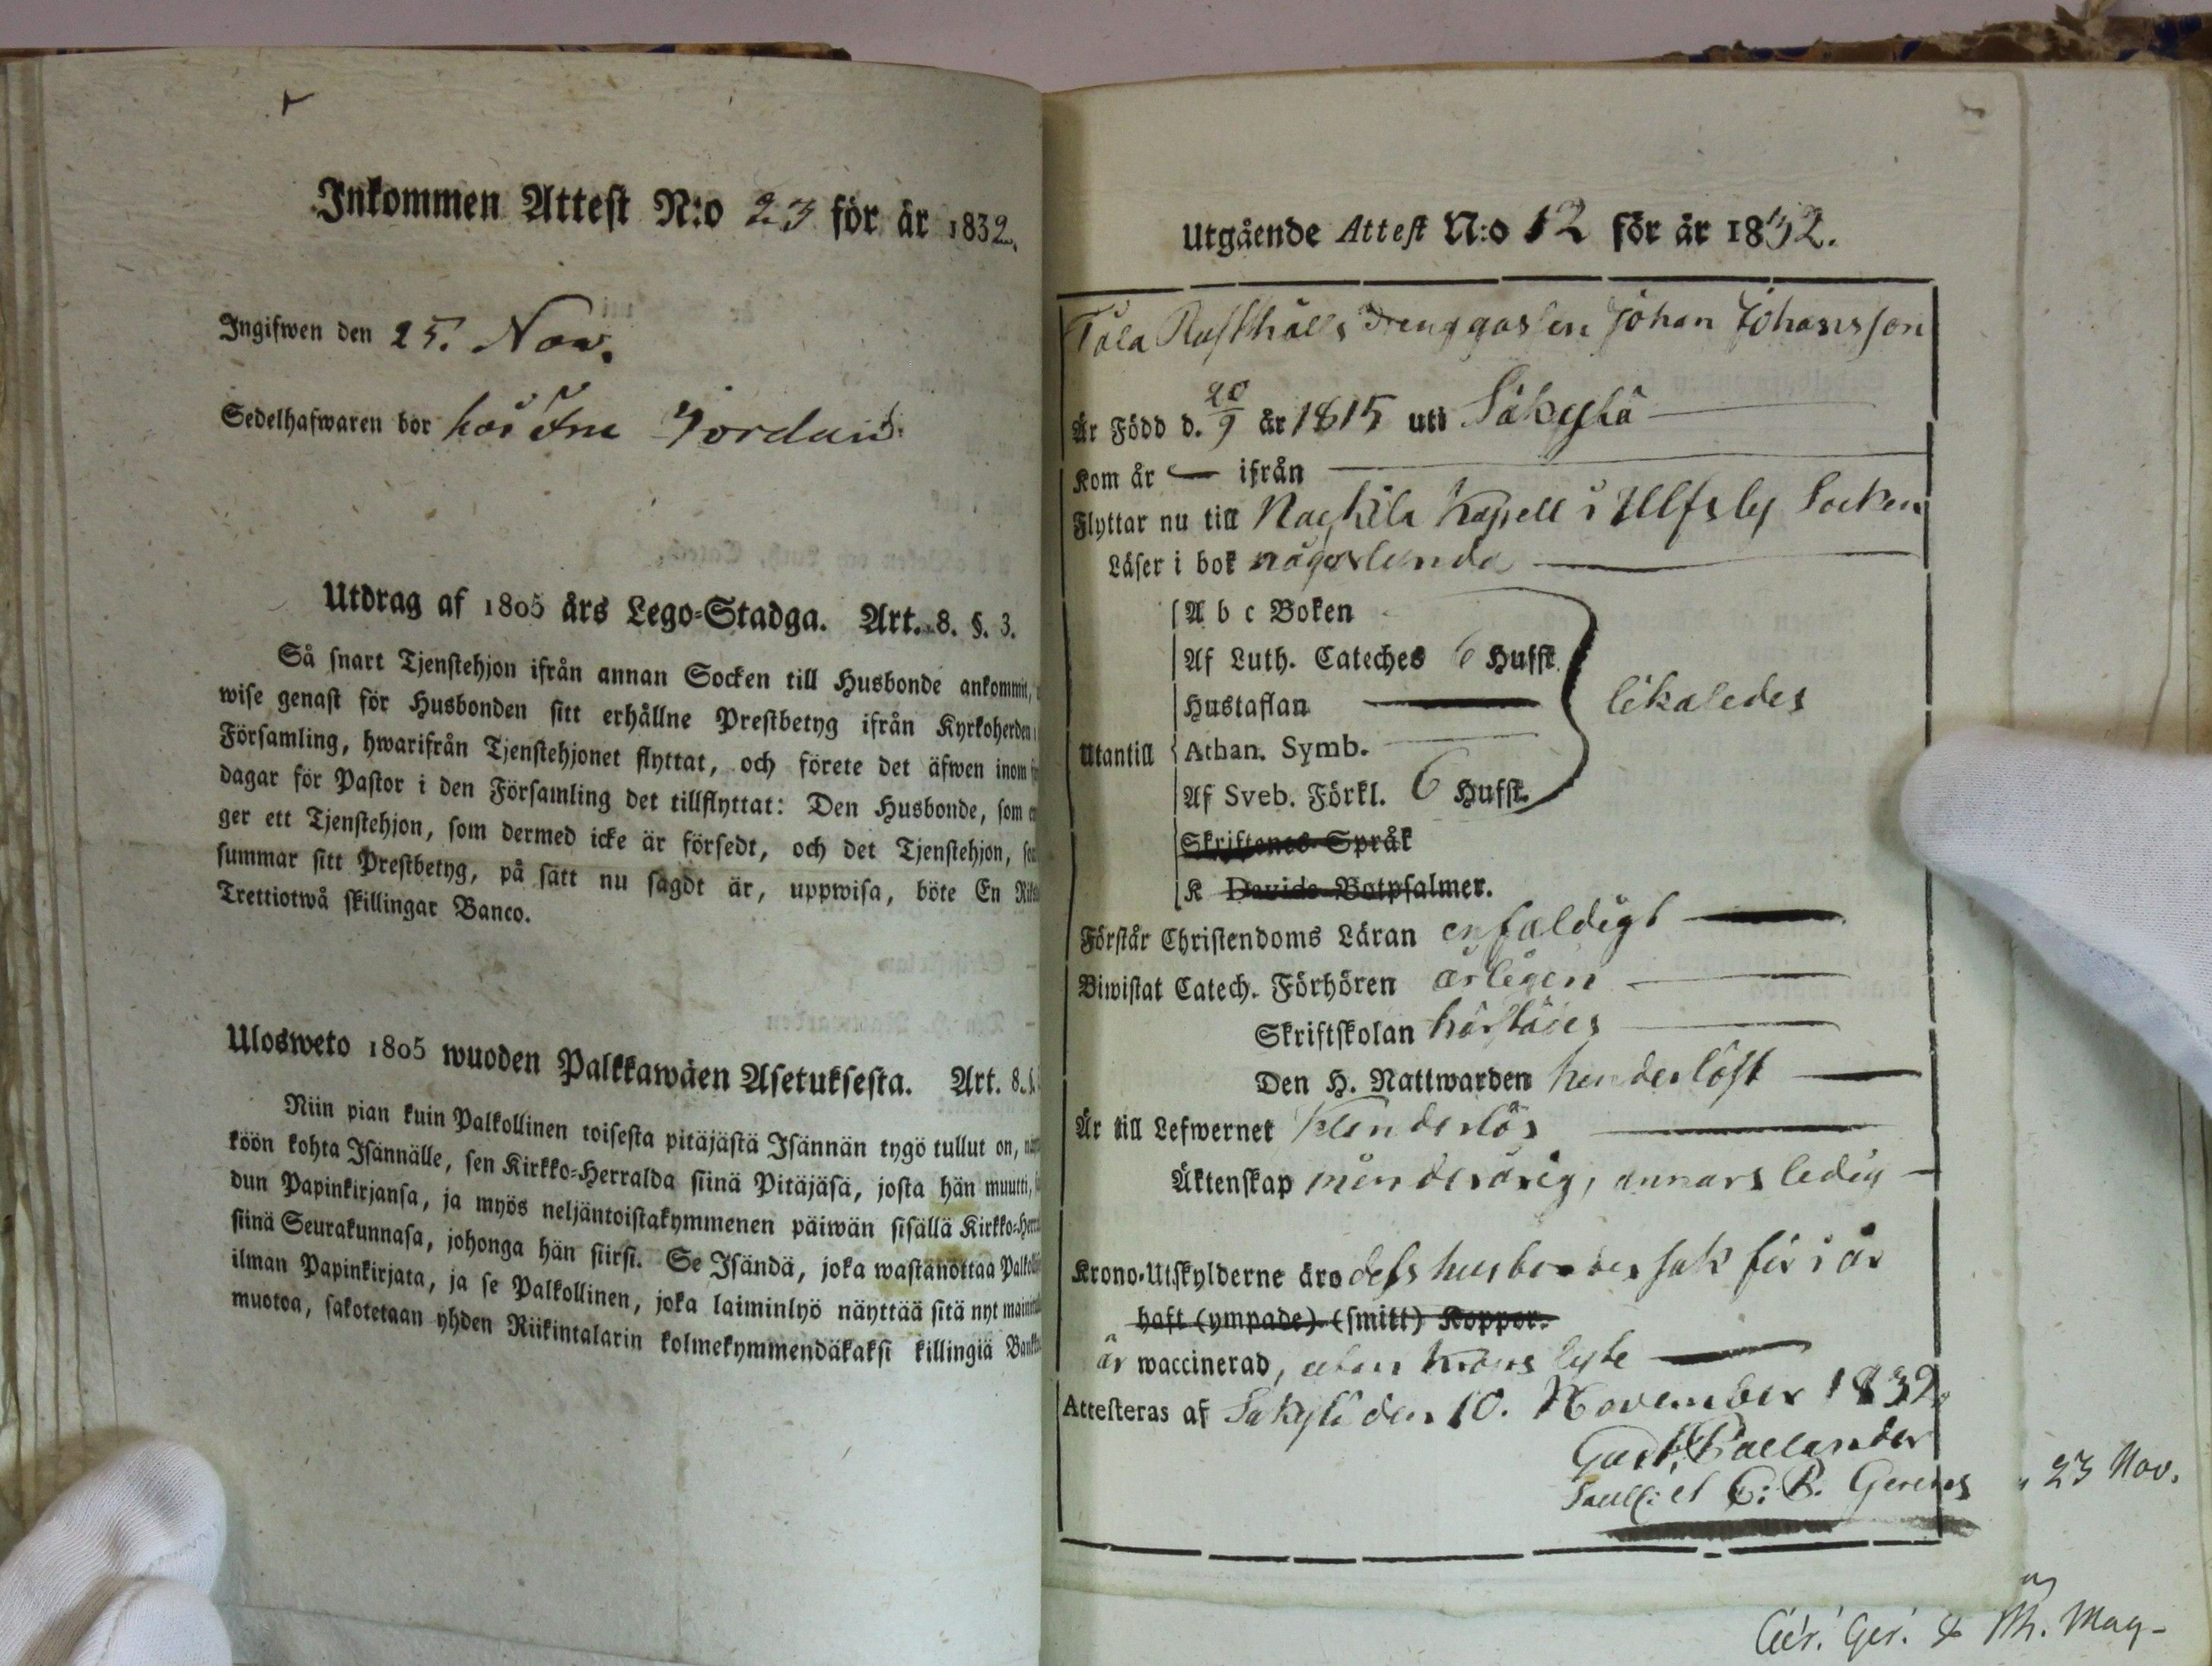 Inkommen Attest N:o 23 för år 1832.
Ingifwen den 25. Nov.
Sedelhafwaren bor hos Fru Jordan
Utdrag af 1805 års Lego-Stadga. Art. 8. §. 3.
Så snart Tjenstehjon ifrån annan Socken till Husbonde ankommit,
wise genast för Husbonden sitt erhållne Prestbetyg ifrån Kyrkoherden
Församling, hwarifrån Tjenstehjonet flyttat, och förete det äfwen inom
dagar för Pastor i den Församling det tillflyttat: Den Husbonde, som
ger ett Tjenstehjon, som dermed icke är försedt, och det Tjenstehjon,
summar sitt Prestbetyg, på sätt nu sagdt är, uppwisa, böte En
Trettiotwå skillingar Banco.
Ulosweto 1805 wuoden Palkkawäen Asetuksesta. Art. 8.
Niin pian kuin Palkollinen toisesta pitäjästä Isännän tygö tullut on,
köön kohta Isännälle, sen Kirkko-Herralda siinä Pitäjäsä, josta hän muutti,
dun Papinkirjansa, ja myös neljäntoistakymmenen päiwän sisällä Kirkko-
siinä Seurakunnasa, johonga hän siirsi. Se Isändä, joka wastanottaa
ilman Papinkirjata, ja se Palkollinen, joka laiminlyö näyttää sitä nyt
muotoa, sakotetaan yhden Riikintalarin kolmekymmendäkaksi killingiä
Utgående Attest N:o 12 för år 1832.
Rusthålls Drenggossen Johan Johansson
Är Född d. 20/9 år 1815 uti Säkylä
Kom år — ifrån —
Flyttar nu till Nackila Kapell i Ulfsby Socken
Läser i bok någorlunda
A b c Boken
Af Luth. Cateches 6 Hufst.
Hustaflan
likaledes
Utantill
Athan. Symb.
Af Sveb. Förkl. 6 Hufst.
Skriftenes Språk
K Davids Botpsalmer.
Förstår Christendoms Läran enfaldigt
Biwistat Catech. Förhören årligen
Skriftskolan härstädes
Den H. Nattwarden hinderlöst
Är till Lefwernet klanderlös
Äktenskap minderårig, annars ledig
Krono-Utskylderne äro dess husbondes sak för i år
haft (ympade) (smitt) Koppor.
är waccinerad, utan lyte
Attesteras af Säkylä den 10. November 1832
Gust. Pallander
23 Nov.